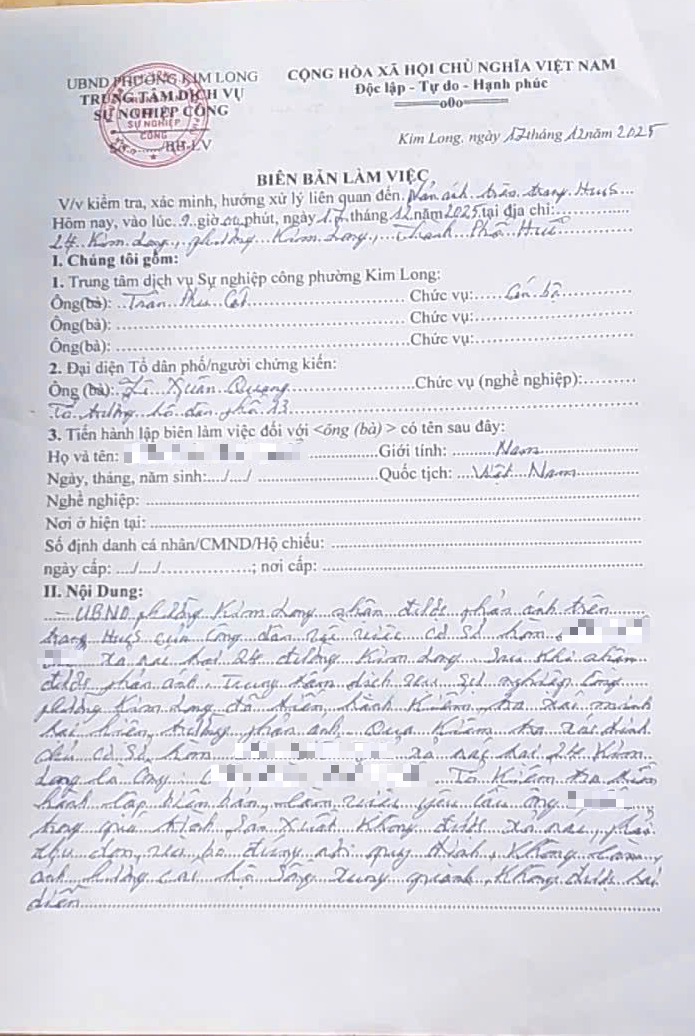 UBND PHƯỜNG KIM LONG
TRUNG TÂM DỊCH VỤ
SỰ NGHIỆP CÔNG
SỰ NGHIỆP
CÔNG
/BB-LV
CỘNG HÒA XÃ HỘI CHỦ NGHĨA VIỆT NAM
Độc lập - Tự do - Hạnh phúc
Kim Long, ngày 17 tháng 12 năm 2025
BIÊN BẢN LÀM VIỆC
V/v kiểm tra, xác minh, hướng xử lý liên quan đến Phản ánh trên trang HueS
Hôm nay, vào lúc 9 giờ 00 phút, ngày 17 tháng 12 năm 2025 tại địa chỉ:
24 Kim Long, phường Kim Long, Thành Phố Huế
I. Chúng tôi gồm:
1. Trung tâm dịch vụ Sự nghiệp công phường Kim Long:
Ông(bà): Trần Chức vụ: Cán bộ
Ông(bà): Chức vụ:
Ông(bà): Chức vụ:
2. Đại diện Tổ dân phố/người chứng kiến:
Ông (bà): Lê Xuân Quang Chức vụ (nghề nghiệp):
Tổ trưởng tổ dân phố 13
3. Tiến hành lập biên làm việc đối với <ông (bà) > có tên sau đây:
Họ và tên: Giới tính: Nam
Ngày, tháng, năm sinh: .../.../ Quốc tịch: Việt Nam
Nghề nghiệp:
Nơi ở hiện tại:
Số định danh cá nhân/CMND/Hộ chiếu:
ngày cấp: .../.../ ; nơi cấp:
II. Nội Dung:
- UBND phường Kim Long nhận được phản ánh trên
trang HueS của công dân về việc cơ sở hòm
xả rác tại 24 đường Kim Long. Sau khi nhận
được phản ánh, Trung tâm dịch vụ sự nghiệp công
phường Kim Long đã tiến hành kiểm tra xác minh
tại hiện trường phản ánh. Qua kiểm tra xác định
chủ cơ sở hòm xả rác tại 24 Kim
Long là ông: Tổ kiểm tra tiến
hành lập biên bản, làm việc yêu cầu ông
trong quá trình sản xuất không được xả rác, phải
thu dọn, và bỏ đúng nơi quy định, không làm
ảnh hưởng các hộ sống xung quanh, không được tái
diễn